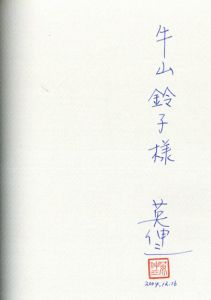 牛山鈴子様
英伸
2004.12.16